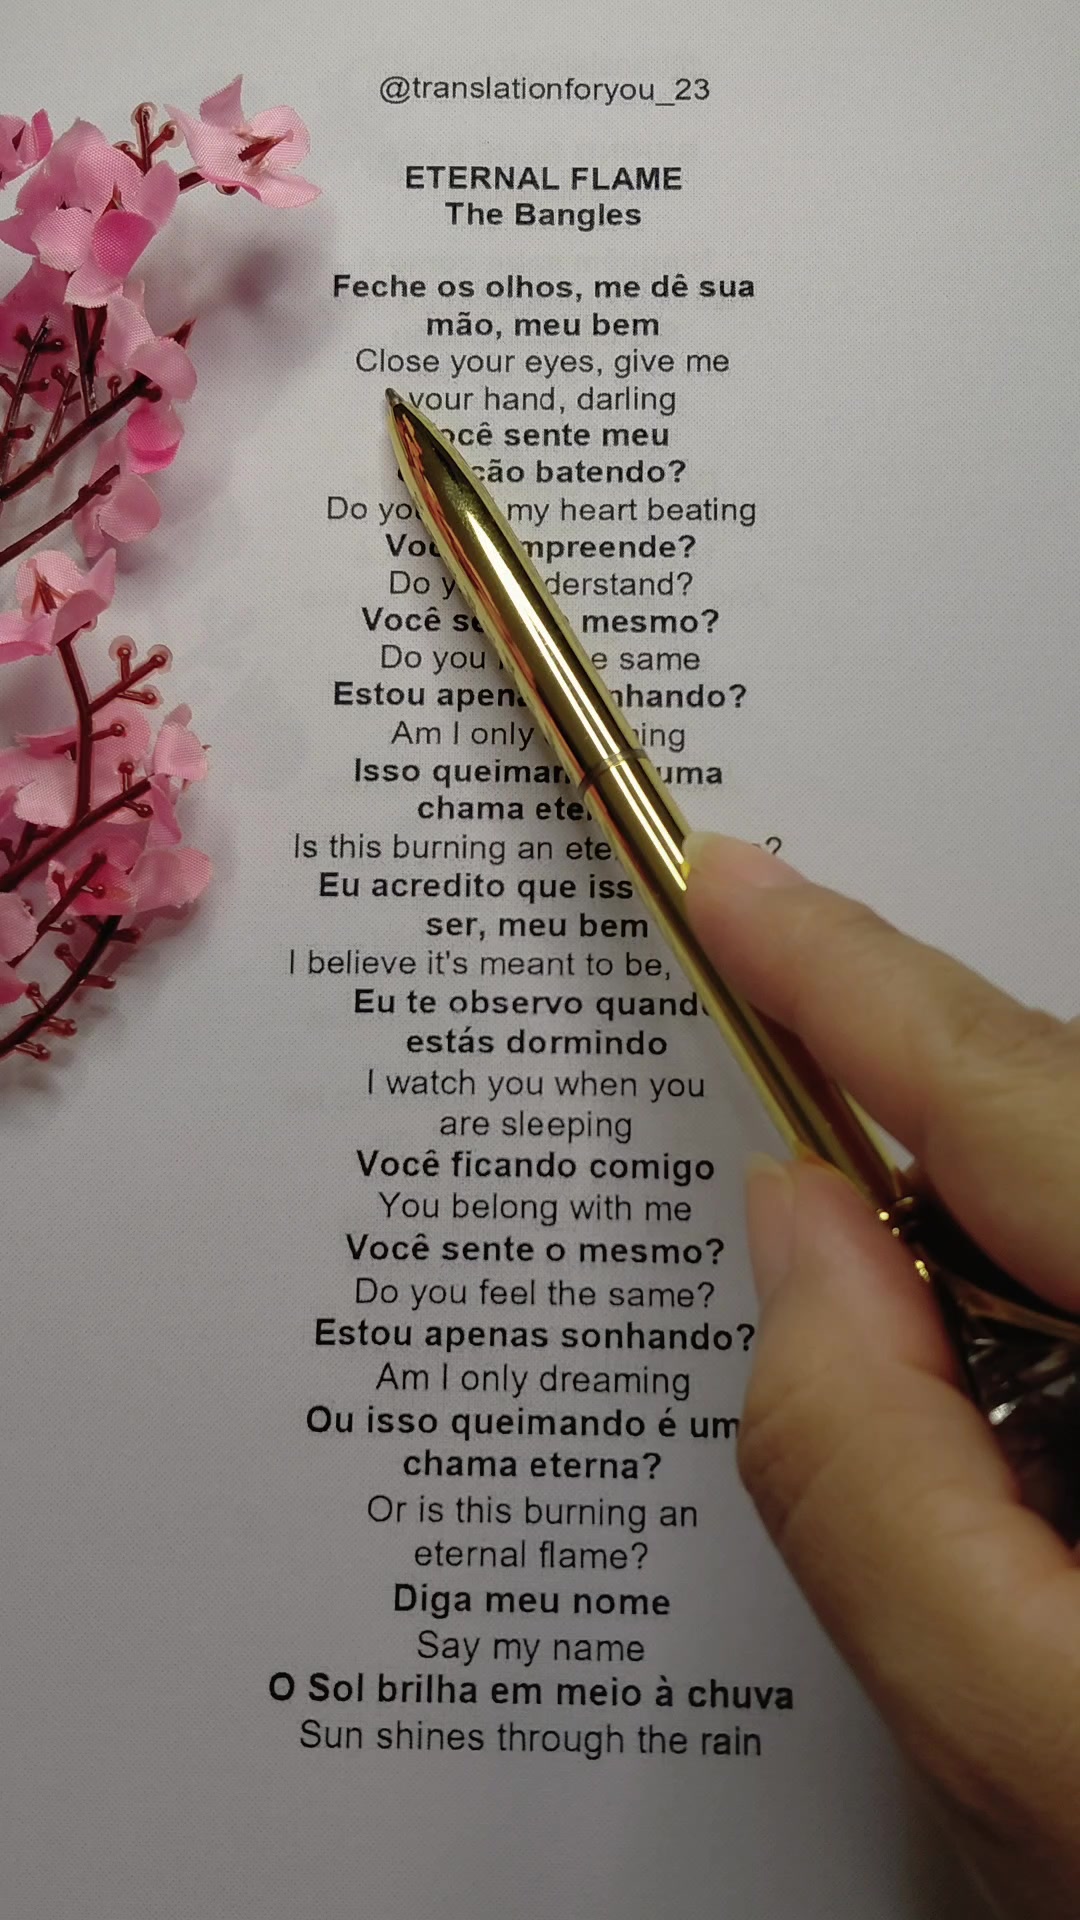 @translationforyou_23
ETERNAL FLAME
The Bangles
Feche os olhos, me dê sua
mão, meu bem
Close your eyes, give me
your hand, darling
sente meu
batendo?
Do my heart beating
Do
Você mesmo?
Do you same
Estou
Am I only
Isso uma
chama
Is this burning an
Eu acredito que
ser, meu bem
I believe it's meant to be,
Eu te observo
estás dormindo
I watch you when you
are sleeping
Você ficando comigo
You belong with me
Você sente o mesmo?
Do you feel the same?
Estou apenas sonhando?
Am I only dreaming
Ou isso queimando é
chama eterna?
Or is this burning an
eternal flame?
Diga meu nome
Say my name
O Sol brilha em meio à chuva
Sun shines through the rain